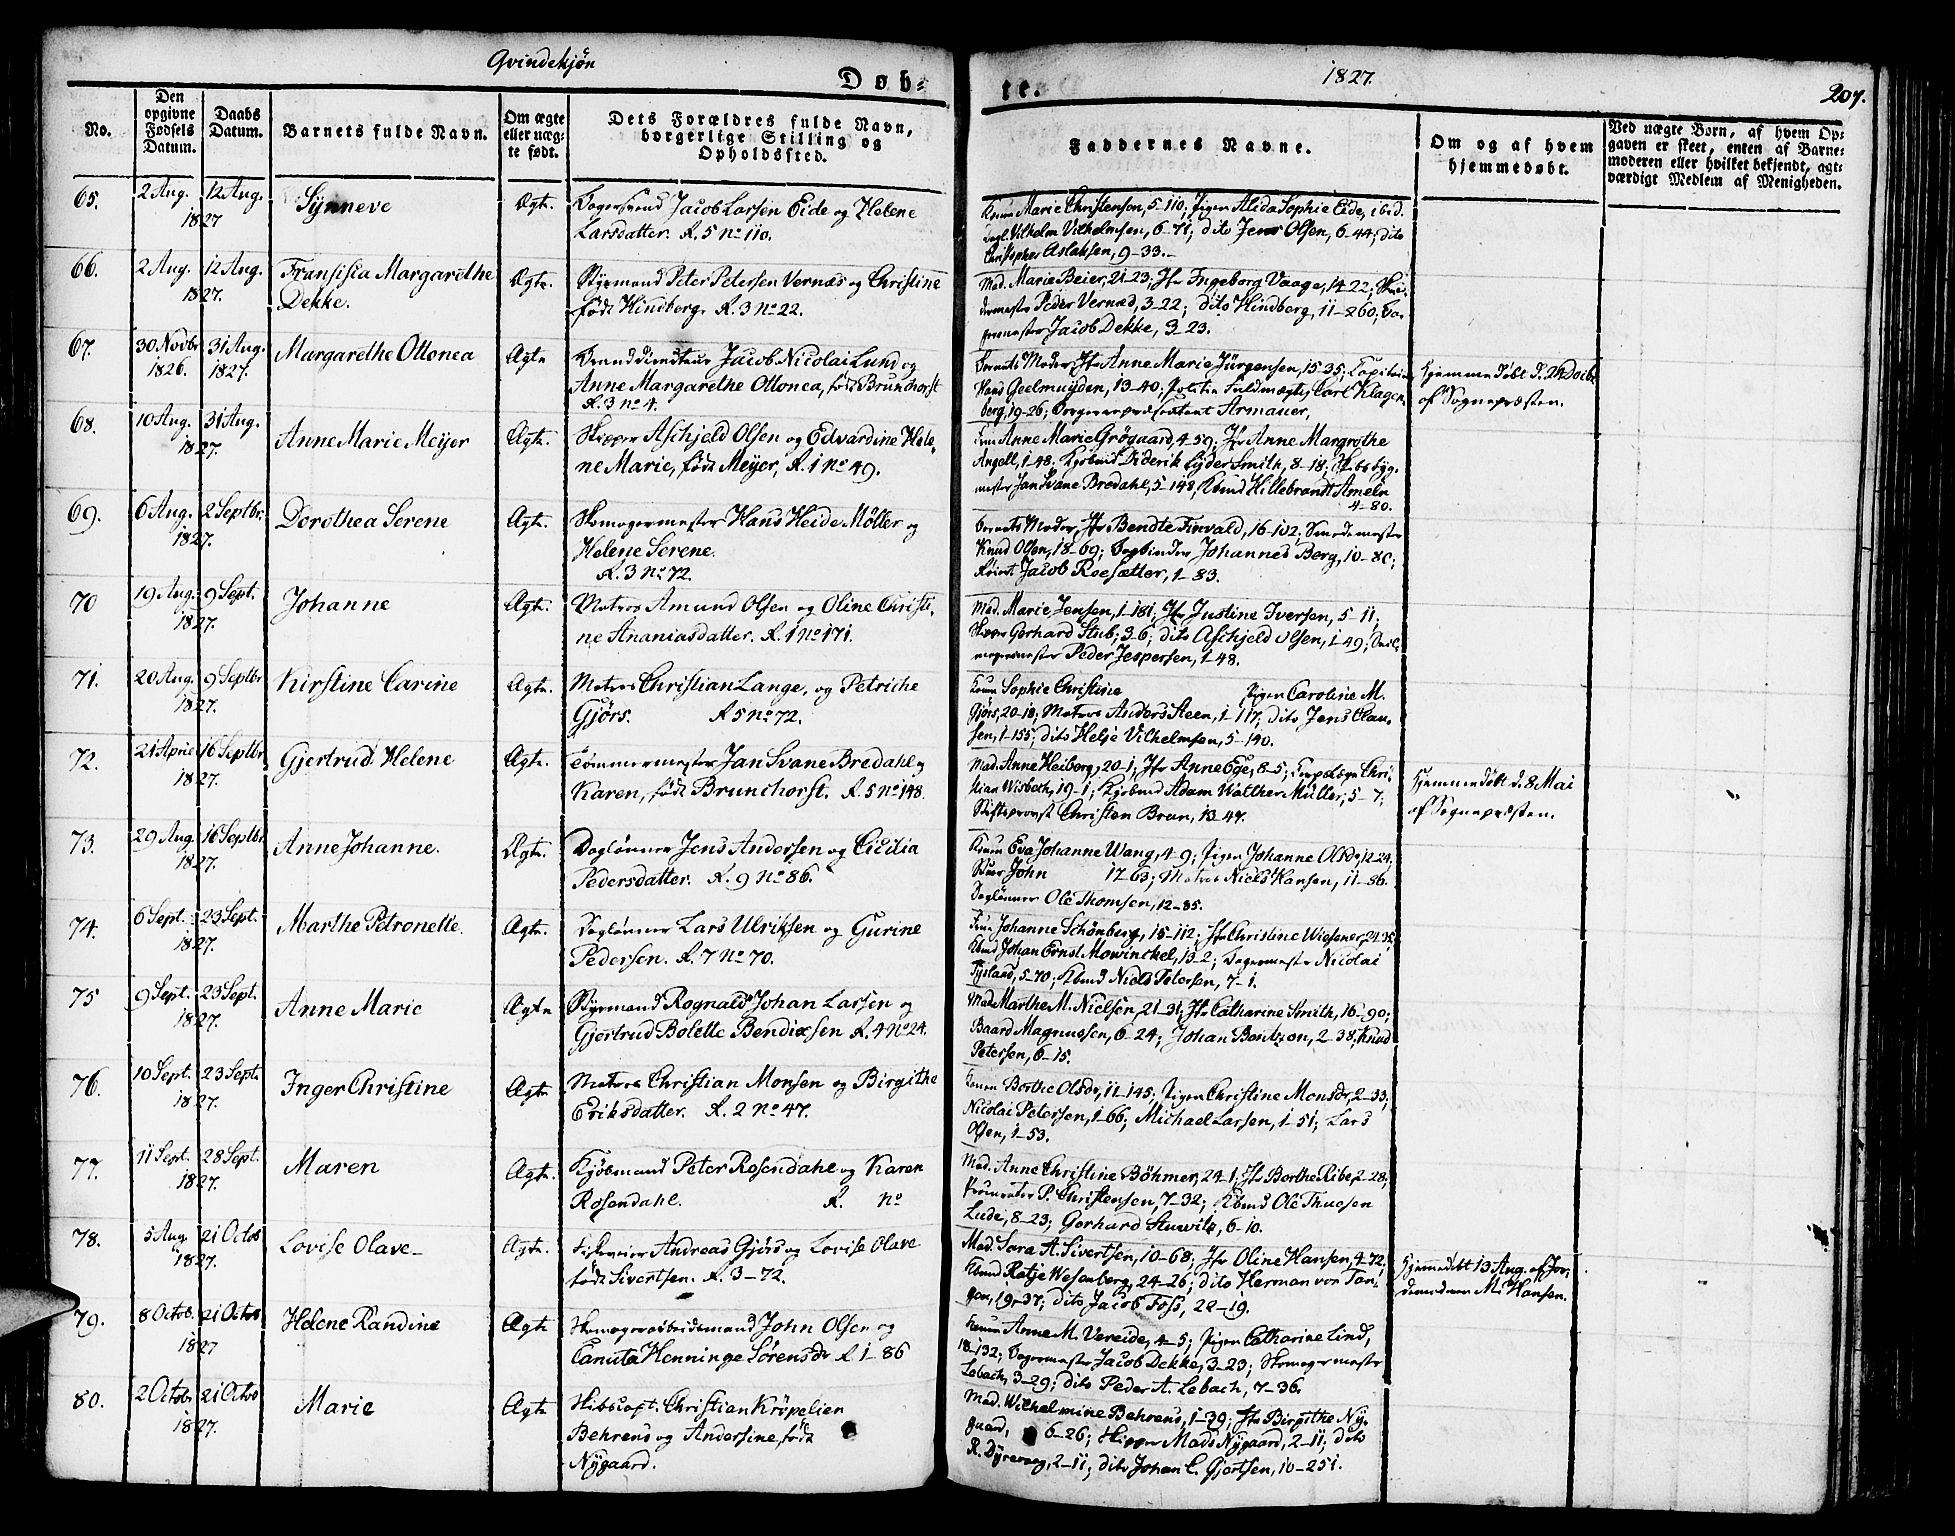 Qvindekjøn
Døb-
te.
1827.
207.
No.
Den opgivne Fødsels Datum.
Daabs Datum.
Barnets fulde Navn.
Om ægte eller uæg-te født.
Dets Forældres fulde Navn, borgerlige Stilling og Opholdssted.
Faddernes Navne.
Om og af hvem hjemmedøbt.
Ved uægte Børn, af hvem Op-
gaven er skeet, enten af Barne-
moderen eller hvilket bekjendt, agt-
værdigt Medlem af Menigheden.
65. 2 Aug. 12 Aug. 1827 Synneve Ægte.
Jacob Larsen Eide og Helene
Larsdatter. R. 5 No 110.
Marie Christensen, 5-110; Pigen Alida Sophie Eide, ibid.
Vilhelm Vilhelmsen, 6-71; dito Jens Olsen, 6-44; dito
Christopher Aslaksen, 9-33.
66. 2 Aug. 12 Aug. 1827. Fransisia Margarethe
Dekke. Ægte.
Styrmand Peter Petersen Vernæs og Christine
født Hindberg. R. 3 No 22.
Mad. Marie Beier, 21-23; Jfr Ingeborg Vaage, 14-22;
Peder Vernæd, 3-22; dito Hindberg, 11-260;
Jacob Dekke, 3-23.
67. 30 Novbr 1826. 31 Aug. 1827. Margarethe Ottonea Ægte
Jacob Nicolai Lund og
Anne Margarethe Ottonea, født Brunchorst
R. 3 No 4.
Barnets Moder, Jfr Anne Marie Jürgensen, 15-35;
Hans Geelmuyden, 13-40; Politie Fuldmægtig Carl Klagen
berg, 19-26; Armauer,
af Sognepræsten.
68. 10 Aug. 31 Aug. 1827. Anne Marie Meyer Ægte.
Skipper Aschjeld Olsen og Edvardine Hele-
ne Marie, født Meyer, R. 1 No 49.
Anne Marie Grøgaard, 4-50; Jfr Anne Margrethe
Angell, 1-48; Kjøbmd Diderik Lyder Smith, 8-18; Skibsbyg-
mester Jan Svane Bredahl, 5-148, Kbmd Hillebrandt Ameln
4-80.
69. 6 Aug. 2 Septbr. 1827. Dorothea Serene Ægte.
Skomagermester Hans Heide Møller og
Helene Serene.
R. 3 No 72.
Barnets Moder, Jfr Bendte Finvald, 16-102; Smedemester
Knud Olsen, 18-69; Bogbinder Johannes Berg, 10-80;
Jacob Roesætter, 1-83.
70 19 Aug. 9 Sept. 1827. Johanne Ægte.
Matros Amund Olsen og Oline Christi-
ne Ananiasdatter. R. 1 No 171.
Mad. Marie Jensen, 1-181; Jfr Justine Iversen, 5-11;
Skipper Gerhard Stub, 3-6; dito Aschjeld Olsen, 1-49;
Peder Jespersen, 1-48.
71. 20 Aug. 9 Septbr 1827. Kirstine Carine Ægte.
Matros Christian Lange, og Petriche
Gjörs. R 5 No 72.
Konen Sophie Christine Pigen Caroline M.
Gjörs, 20-18; Matros Anders Steen, 1-117, dito Jens Clau-
sen, 1-155; dito Helje Vilhelmsen, 5-140.
72. 21 April 16 Septbr 1827. Gjertrud Helene Ægte.
Tömmermester Jan Svane Bredahl og
Karen, født Brunchorst. R. 5 No 148.
Mad. Anne Heiberg, 20-1; Jfr Anne Ege, 8-5; Chri-
stian Wisbech, 19-1; Kjøbmd Adam Walther Müller, 5-7;
Stiftsprovst Christen Brun, 13-47.
Hjemmedøbt d. 8 Mai
af Sognepræsten.
73. 29 Aug. 16 Septbr. 1827. Anne Johanne. Ægte.
Daglønner Jens Andersen og Cicilia
Pedersdatter. R. 9 No 86.
Konen Eva Johanne Wang, 4-9; Pigen Johanne Olsdr, 12-24.
John 17-63; Matros Niels Hansen, 11-86.
Daglønner Ole Thomsen, 12-85.
74. 6 Sept. 23 Sept. 1827. Marthe Petronelle. Ægte.
Daglønner Lars Ulriksen og Gurine
Pedersen. R. 7 No 70.
Johanne Schönberg, 15-112; Jfr Christine Wiesener, 24-35;
Kbmd Johan Ernst Mowinckel, 13-2; Bagermester Nicolai
Fysland, 5-70; Kbmd Niels Petersen, 7-1.
75 9 Sept. 23 Sept. 1827. Anne Marie Ægte
Styrmand Rognald Johan Larsen og
Gjertrud Bolette Bendixsen R. 4 No 24.
Mad. Marthe M. Nielsen, 21-31; Jfr Catharine Smith, 16-90;
Baard Magnussen, 6-24; Johan Bentzon, 2-38; Knud
Petersen, 6-15.
76. 10 Sept. 23 Sept. 1827. Inger Christine Ægte
Matros Christian Monsen og Birgithe
Eriksdatter. R. 2 No 47.
Konen Berthe Olsdr, 11-145; Pigen Christine Monsdr, 2-33;
Nicolai Petersen, 1-66; Michael Larsen, 1-51; Lars
Olsen, 1-53.
77. 11 Sept. 28 Sept. 1827. Maren Ægte.
Kjøbmand Peter Rosendahl og Karen
Rosendahl. R. No
Mad. Anne Christine Böhmer, 24-1; Jfr Berthe Ribe, 2-28;
Procurator P. Christensen, 7-32; Kbmd Ole Thuesen
Lude, 8-23; Gerhard Stuwitz, 6-10.
78. 5 Aug. 21 Octob 1827. Lovise Olave Ægte.
Andreas Gjörs og Lovise Olave
født Sivertsen. R. 3-72.
Mad. Sara A. Sivertsen, 10-68; Jfr Oline Hansen, 4-72,
Kbmd Ratje Wesenberg, 24-26; dito Herman von Tan-
gen, 19-37; dito Jacob Foss, 22-19.
Hjemmedøbt 13 Aug. af Jor-
demoderen M. Hansen.
79. 8 Octob. 21 Octob 1827 Helene Randine Ægte
Skomagerarbeidsmand John Olsen og
Canuta Henninge Sörensdr R 1-86
Konen Anne M. Vereide, 4-5; Pigen Catharine Lind,
18-132; Bagermester Jacob Dekke, 3-23; Skomagermester
Lebach, 3-29; dito Peder A. Lebach, 7-36.
80. 2 Octobr 21 Octob 1827. Marie Ægte
Skibscapt. Christian Kröpelien
Behrens og Andersine, født
Nygaard.
Mad. Wilhelmine Behrens, 1-39; Jfr Birgithe Ny-
gaard, 6-26; Skipper Mads Nygaard, 2-11; dito
R. Dyrevaag, 2-11; dito Johan C. Gjertsen, 10-251.